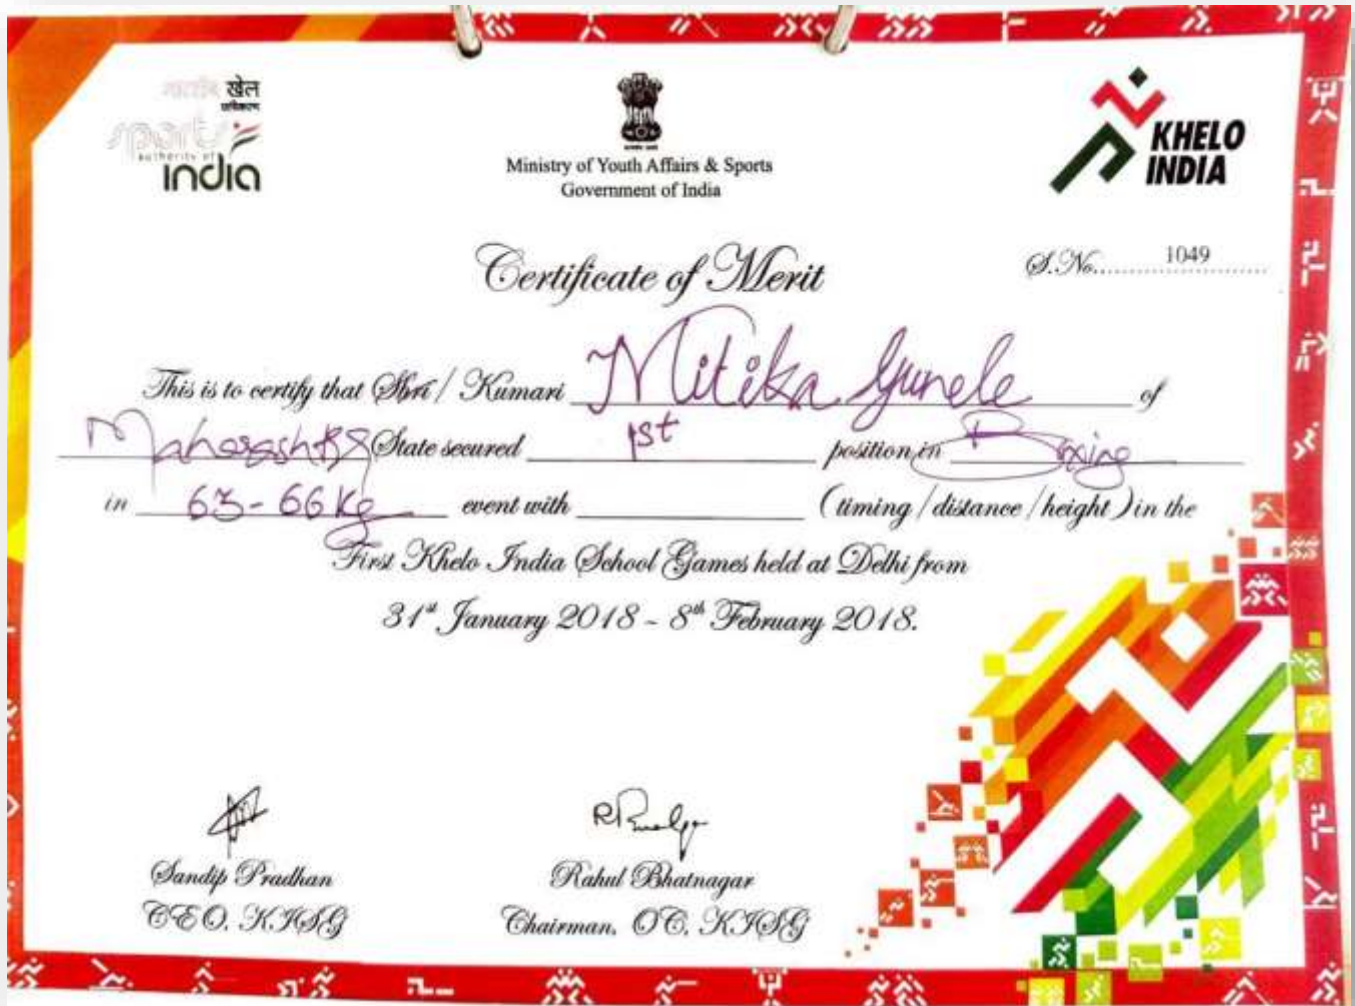 भारतीय खेल
प्राधिकरण
sports
authority of
india
Ministry of Youth Affairs & Sports
Government of India
KHELO
INDIA
Certificate of Merit
S.No. 1049
This is to certify that Shri / Kumari Mitika Gunele of
Maharashtra State secured 1st position in Boxing
in 63-66 Kg event with (timing / distance / height) in the
First Khelo India School Games held at Delhi from
31st January 2018 ~ 8th February 2018.
Sandip Pradhan
CEO, KISG
Rahul Bhatnagar
Chairman, OC, KISG